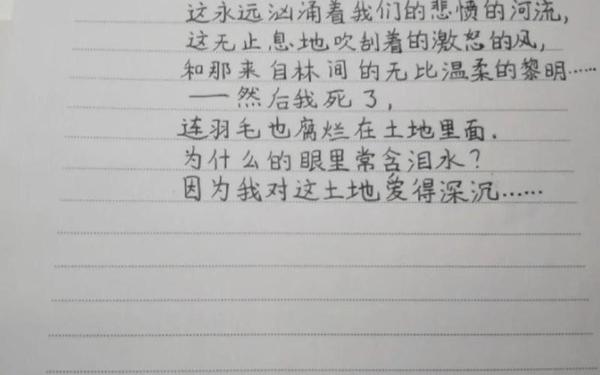 这永远汹涌着我们的悲愤的河流，
这无止息地吹刮着的激怒的风，
和那来自林间的无比温柔的黎明……
——然后我死了，
连羽毛也腐烂在土地里面.
为什么的眼里常含泪水？
因为我对这土地爱得深沉……